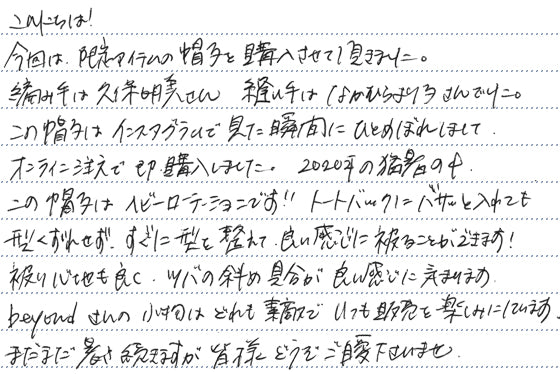 こんにちは!
今回は、限定アイテムの帽子を購入させて頂きました。
編み手は久保明美さん 縫い手はなかむらまり子さんでした。
この帽子はインスタグラムで見た瞬間にひとめぼれして、
オンライン注文で即購入しました。 2020年の猛暑の中、
この帽子はヘビーローテーションです!! トートバックにバサッと入れても
型くずれせず、すぐに型を整えて、良い感じに被ることができます!
被り心地も良く、ツバの斜め具合が良い感じに決まります。
beyondさんの小物はどれも素敵で いつも販売を楽しみにしています。
まだまだ暑さ続きますが 皆様どうぞご自愛下さいませ。